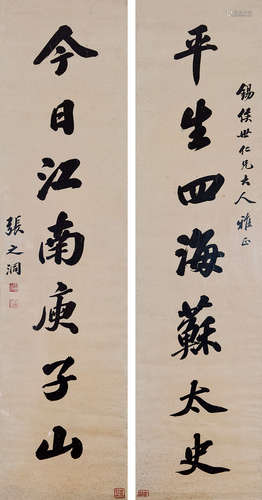 錫侯世仁兄大人雅正
平生四海蘇太史
今日江南庾子山
張之洞